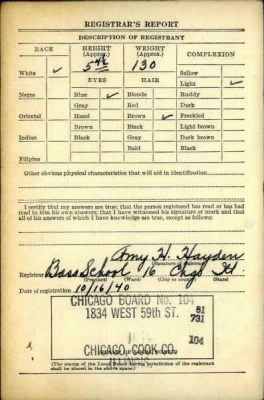 REGISTRAR'S REPORT
DESCRIPTION OF REGISTRANT
RACE HEIGHT (Approx.) WEIGHT (Approx.) COMPLEXION
5 4½ 130 Sallow
White ✓ EYES HAIR Light ✓
Negro Blue ✓ Blonde Ruddy
Gray Red Dark
Oriental Hazel Brown ✓ Freckled
Brown Black Light brown
Indian Black Gray Dark brown
Bald Black
Filipino
Other obvious physical characteristics that will aid in identification
I certify that my answers are true; that the person registered has read or has had
read to him his own answers; that I have witnessed his signature or mark and that
all of his answers of which I have knowledge are true, except as follows:
Amy H. Hayden
(Signature of registrar)
Registrar Bass School 16 Chgo Ill.
(Ward) (City or county) (State)
Date of registration 10/16/40
CHICAGO BOARD No. 104
1834 WEST 59th ST. 81
731
104
CHICAGO COOK CO.
ILLINOIS
(The stamp of the Local Board having jurisdiction of the registrant
shall be placed in the above space.)